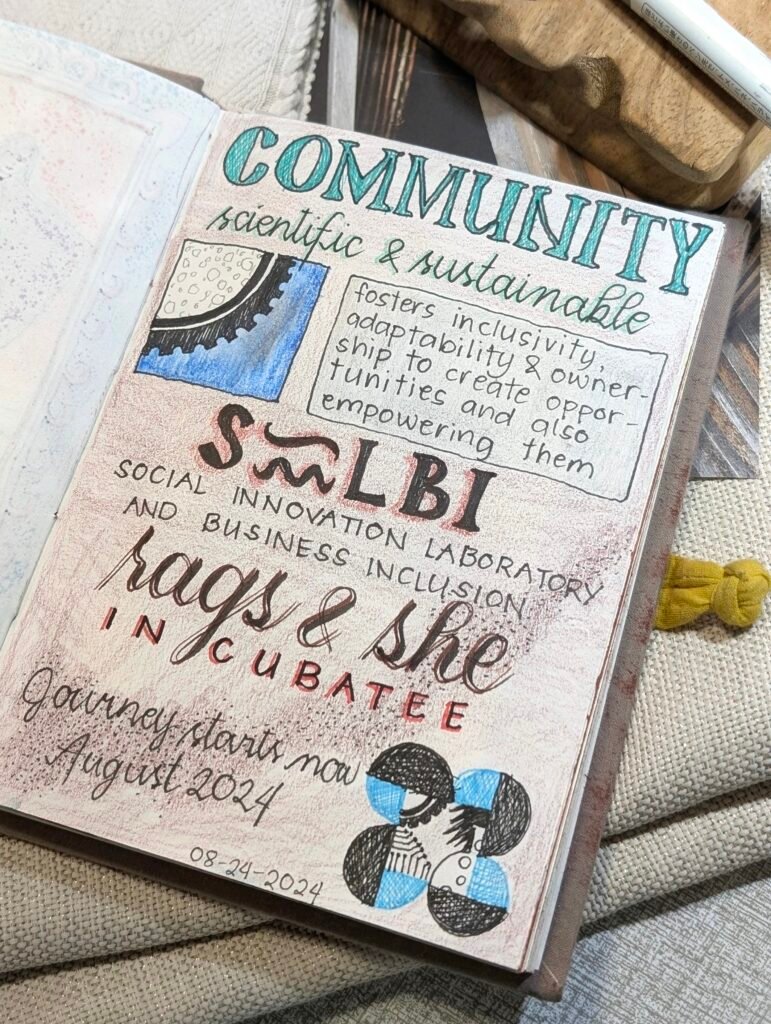 COMMUNITY
scientific & sustainable
fosters inclusivity,
adaptability & owner-
ship to create oppor-
tunities and also
empowering them
S LBI
SOCIAL INNOVATION LABORATORY
AND BUSINESS INCLUSION
rags & she
INCUBATEE
Journey starts now
August 2024
08-24-2024